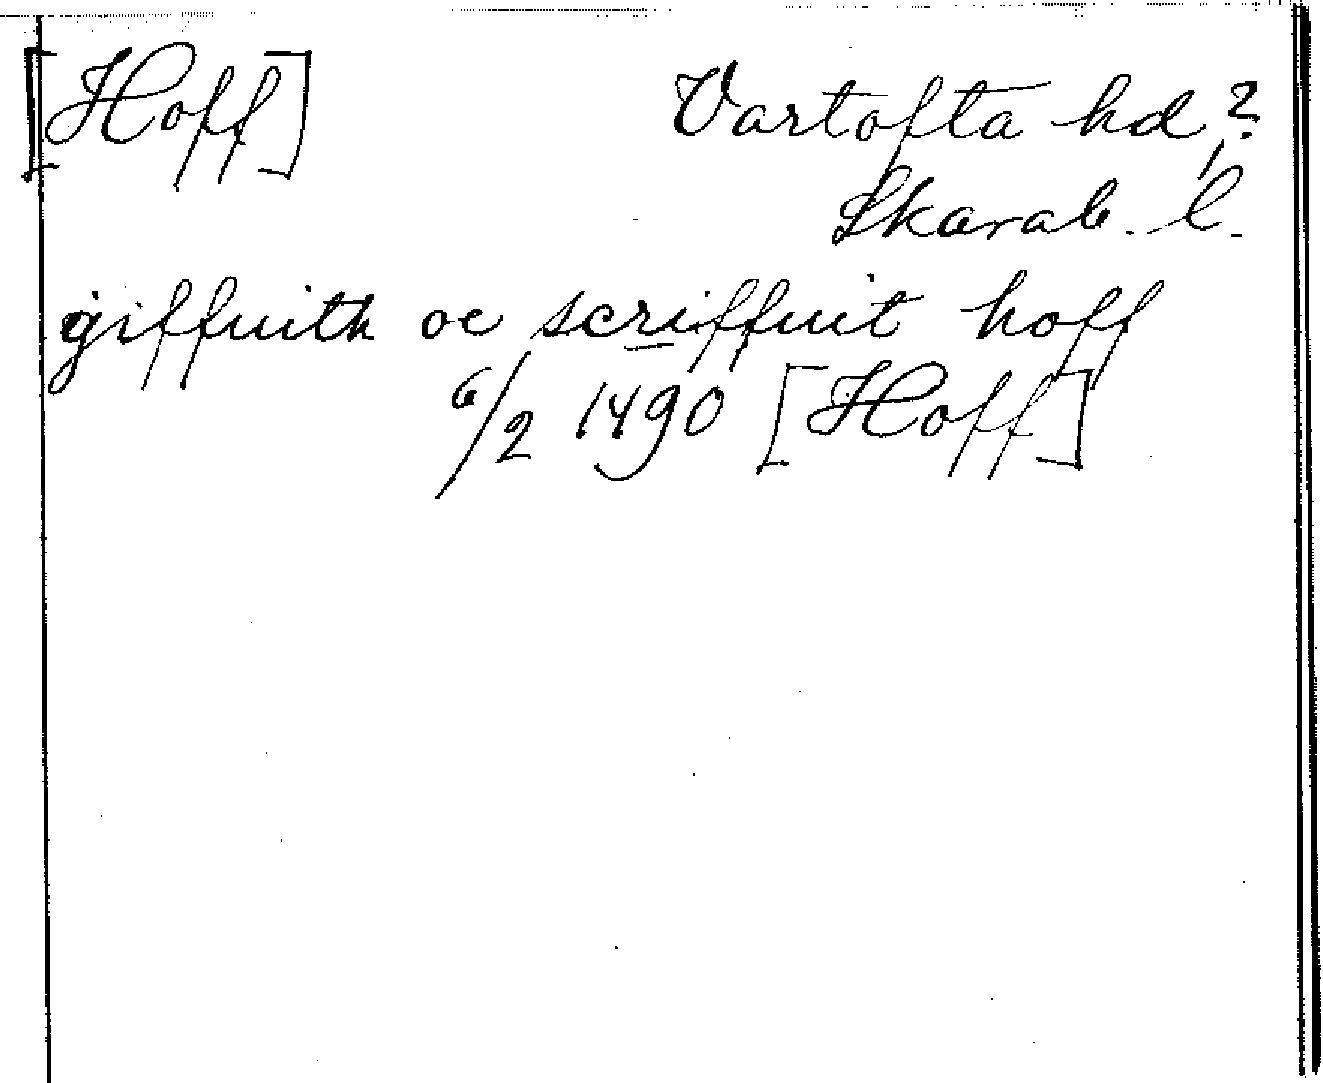 [Hoff] Vartofta hd,?
Skarab. l.
giffuith oc scriffuit hoff
6/2 1490 [Hoff]